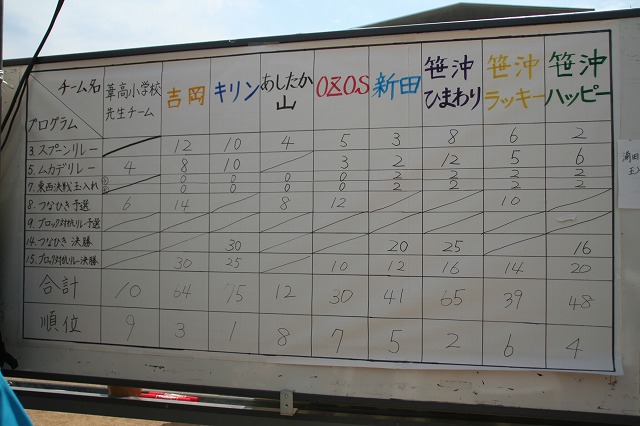 チーム名 葦高小学校先生チーム 吉岡 キリン あしたか山 OZ.O.S 新田 笹沖ひまわり 笹沖ラッキー 笹沖ハッピー
プログラム
3. スプーンリレー 12 10 4 5 3 8 6 2
5. ムカデリレー 4 8 10 3 2 12 5 6
7. 東西決戦玉入れ ① 0 0 0 0 2 2 2 2
② 0 0 0 0 2 2 2 2
8. つなひき予選 6 14 8 12 10
9. ブロック対抗リレー予選
14. つなひき 決勝 30 20 25 16
15. ブロック対抗リレー決勝 30 25 10 12 16 14 20
合計 10 64 75 12 30 41 65 39 48
順位 9 3 1 8 7 5 2 6 4